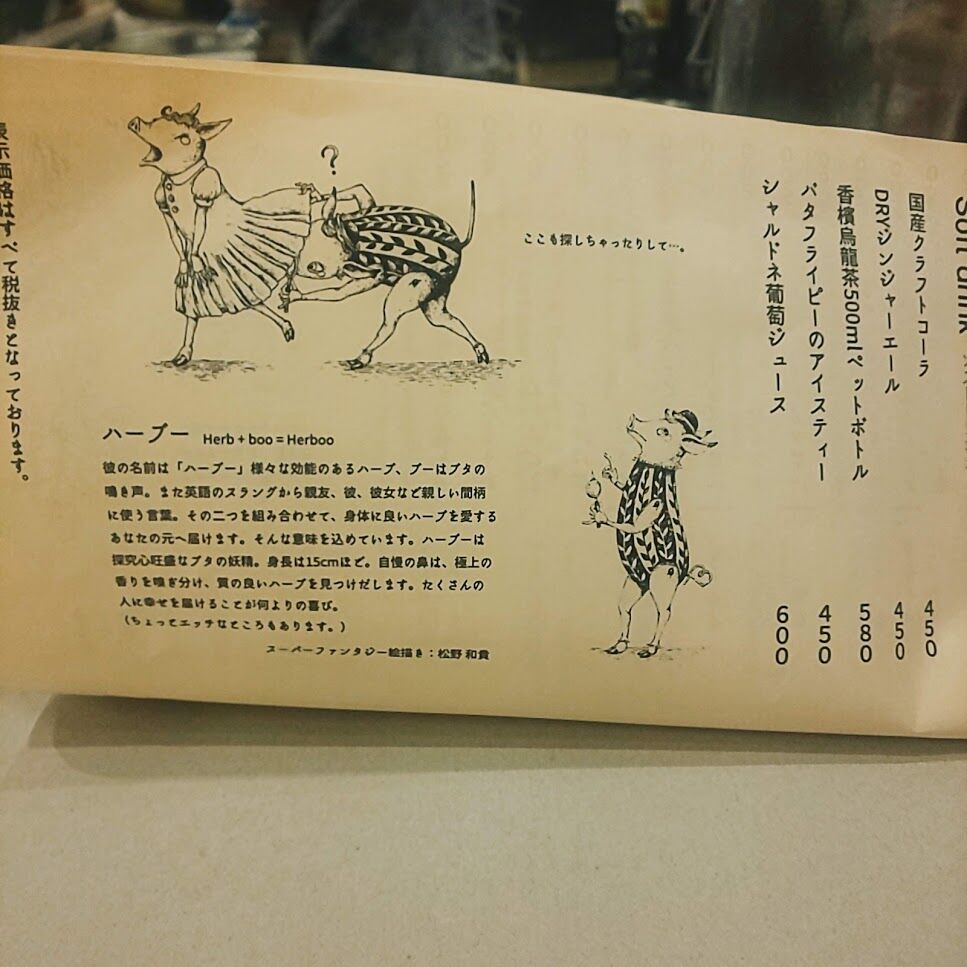 Soft drink
国産クラフトコーラ 450
DRYジンジャーエール 450
香檳烏龍茶500mlペットボトル 580
バタフライピーのアイスティー 450
シャルドネ葡萄ジュース 600
?
ここも探しちゃったりして…。
ハーブー Herb + boo = Herboo
彼の名前は「ハーブー」様々な効能のあるハーブ、ブーはブタの
鳴き声。また英語のスラングから親友、彼、彼女など親しい間柄
に使う言葉。その二つを組み合わせて、身体に良いハーブを愛する
あなたの元へ届けます。そんな意味を込めています。ハーブーは
探究心旺盛なブタの妖精。身長は15cmほど。自慢の鼻は、極上の
香りを嗅ぎ分け、質の良いハーブを見つけだします。たくさんの
人に幸せを届けることが何よりの喜び。
(ちょってエッチなところもあります。)
スーパーファンタジー絵描き:松野 和貴
表示価格はすべて税抜きとなっております。